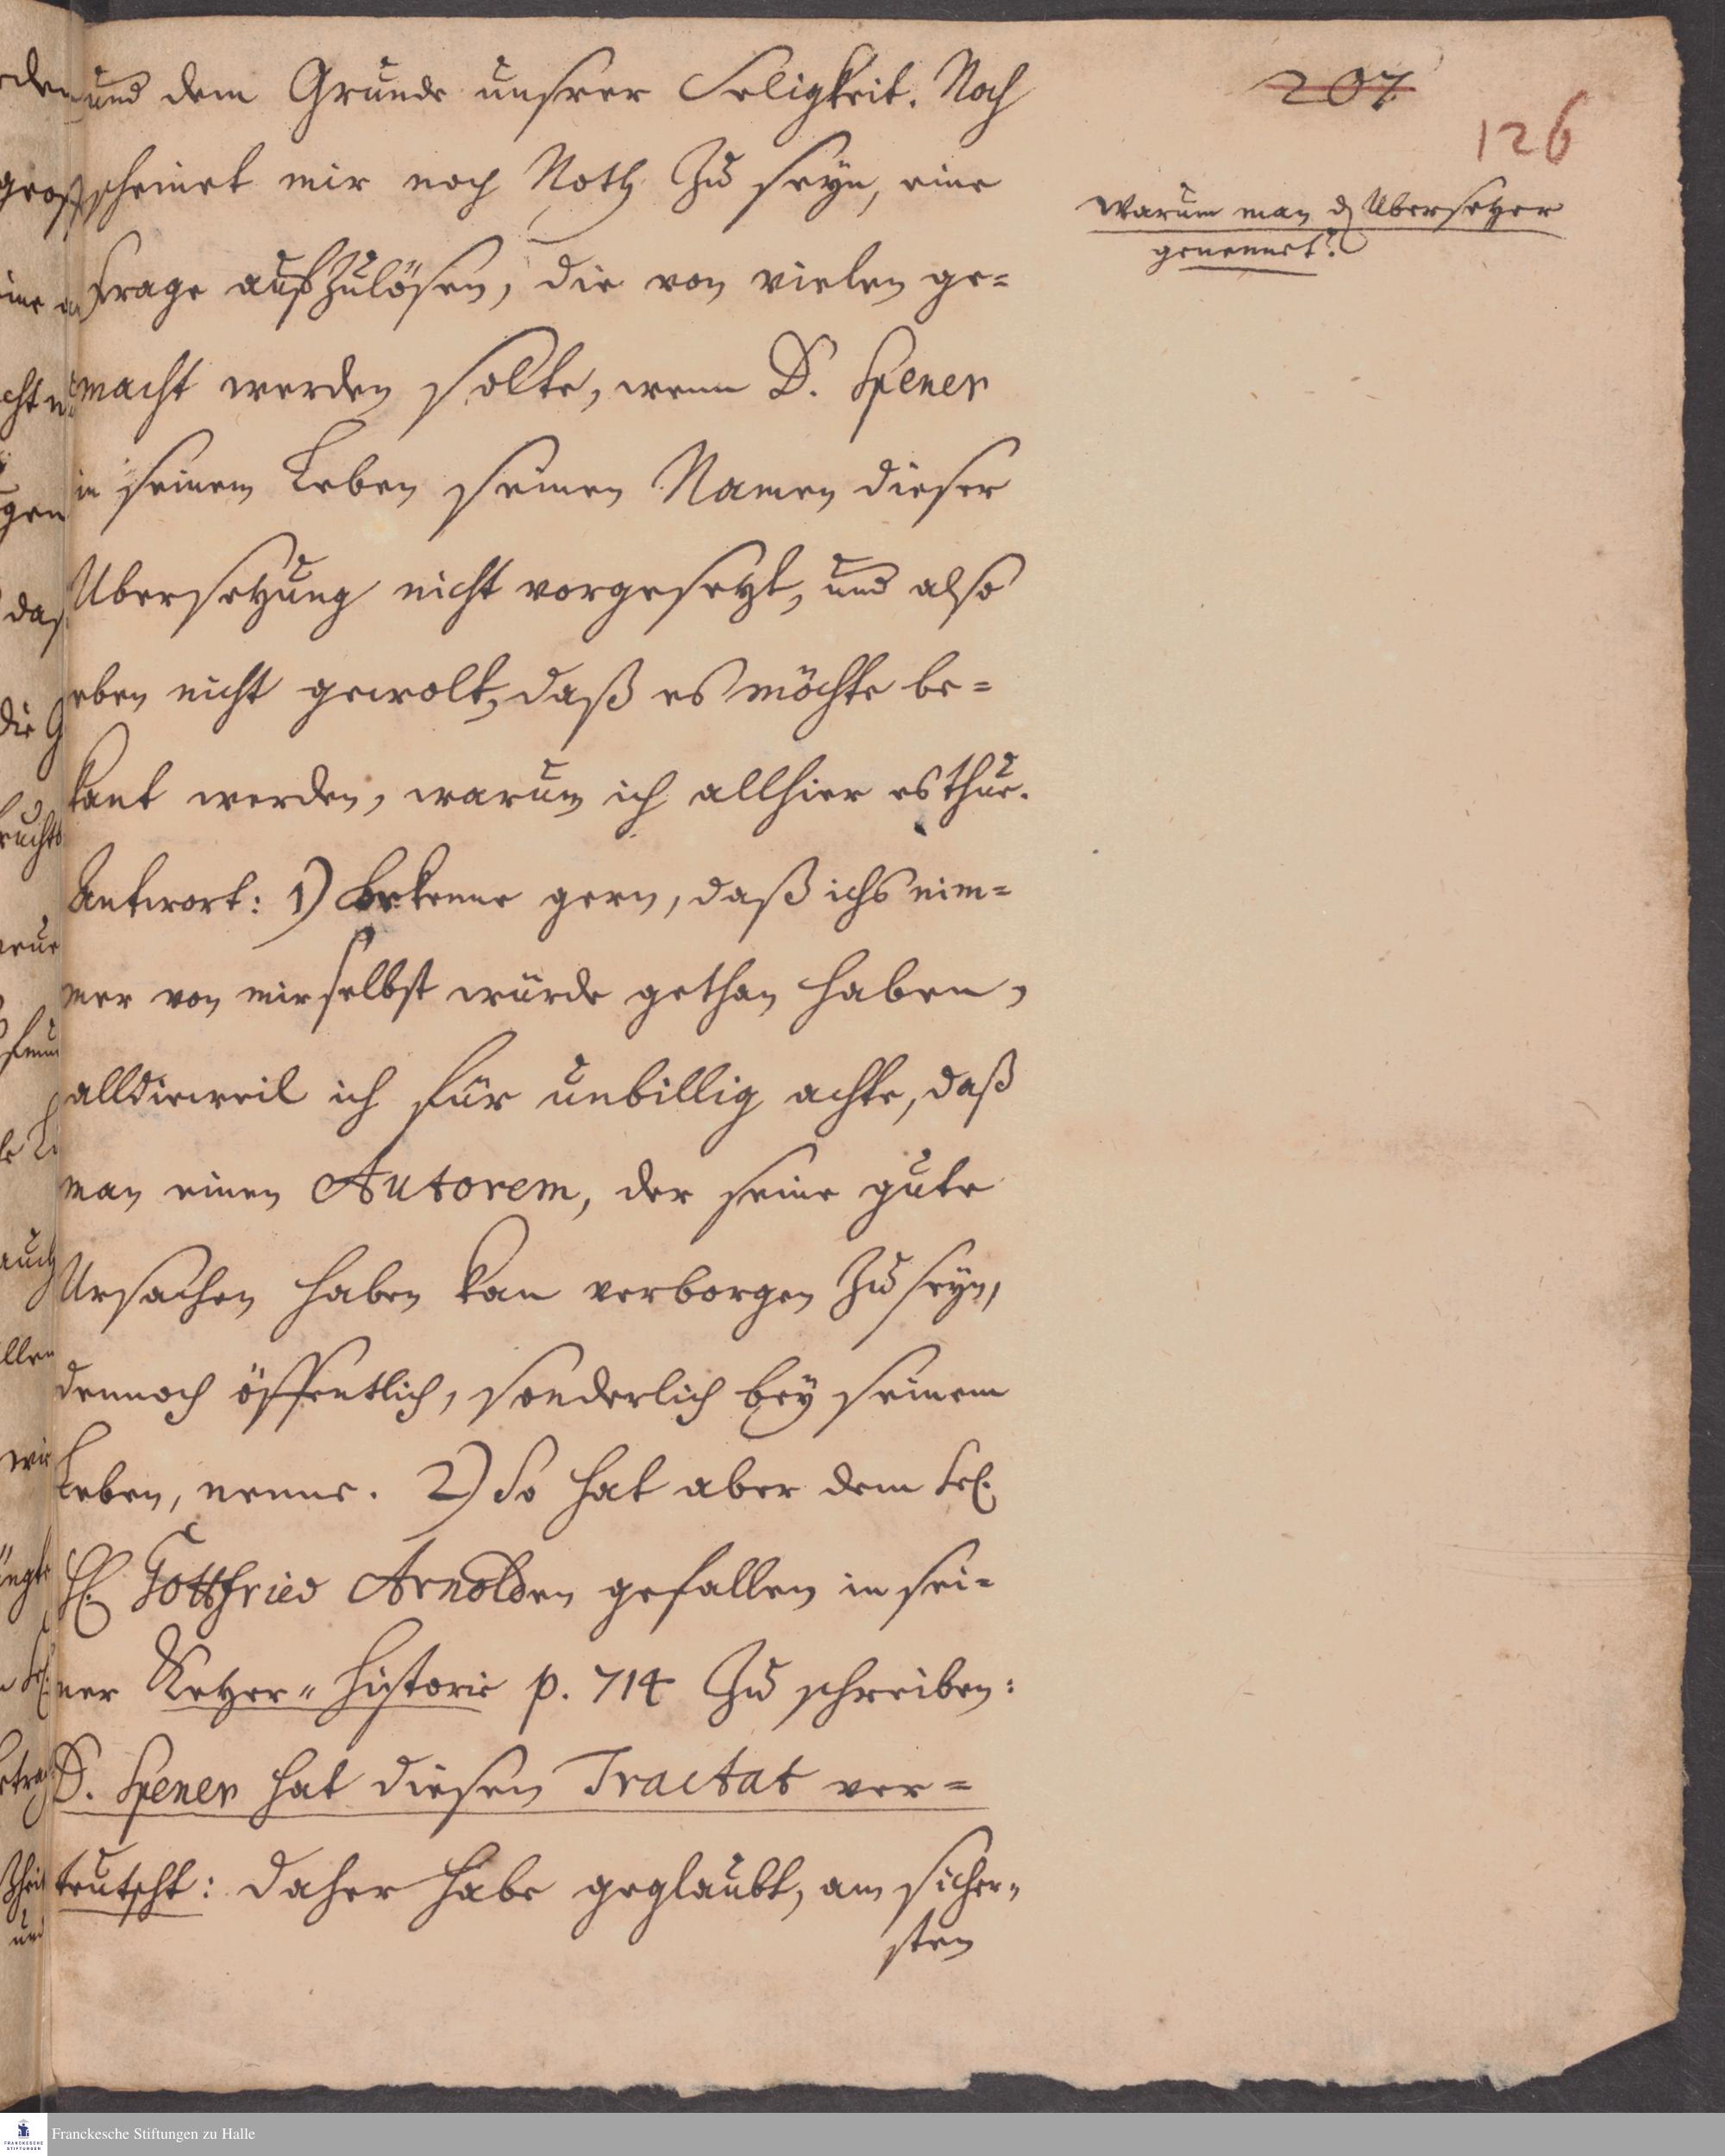 207
126
und dem Grunde unsrer Seligkeit. Noch
scheinet mir noch Noth zu seyn, eine
Frage auffzulösen, die von vielen ge=
macht werden solte, wenn D. Spener
in seinem Leben seinen Namen dieser
Ubersetzung nicht vorgesetzt, und also
eben nicht gewolt, daß es möchte be=
kant werden, warum ich allhier es thue.
Antwort: 1) bekenne gern, daß ichs nim=
mer von mir selbst würde gethan haben,
alldieweil ich für unbillig achte, daß
man einen Autorem, der seine gute
Ursachen haben kan verborgen zu seyn,
dennoch öffentlich, sonderlich bey seinem
Leben, nenne. 2) So hat aber dem Sel.
H. Gottfried Arnolden gefallen in sei=
ner Ketzer=Historie p. 714 zu schreiben:
D. Spener hat diesen Tractat ver=
teutscht: daher habe geglaubt, am sicher=
sten
Warum man d Ubersetzer
genennet?
Franckesche Stiftungen zu Halle